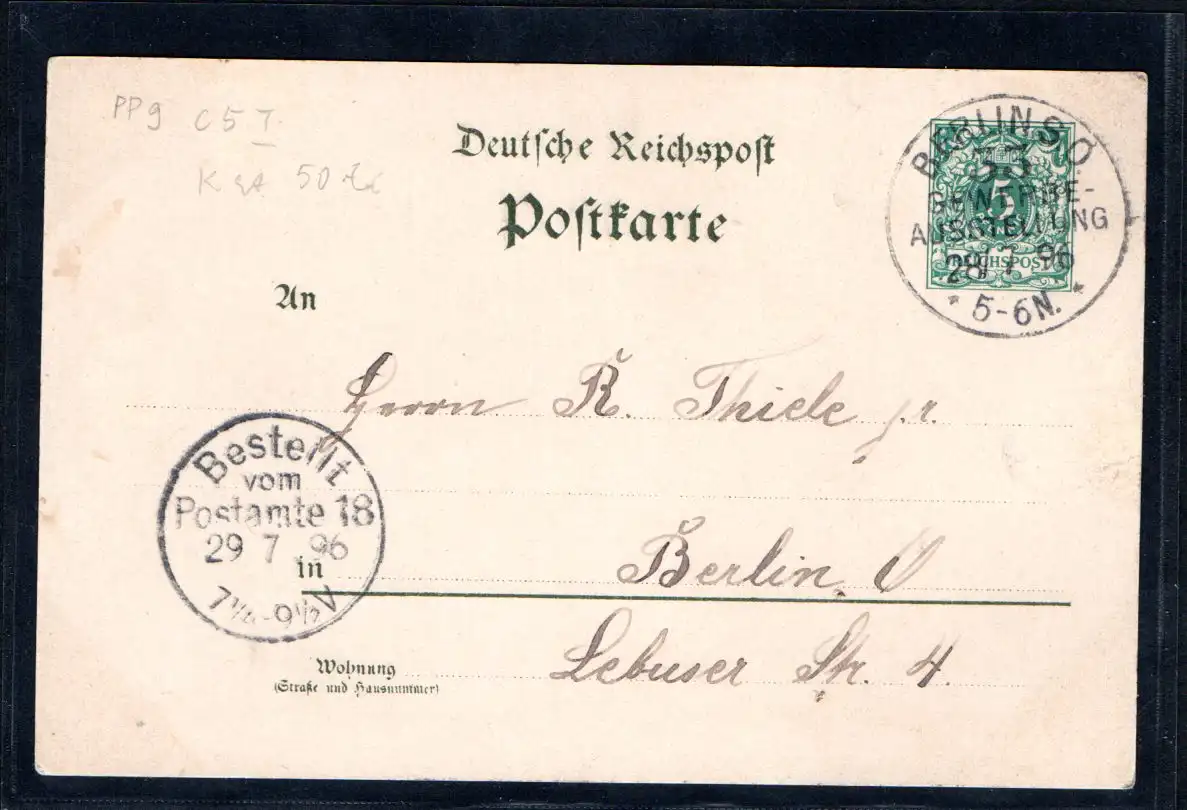 PP 9 C 5 I.
50
Deutsche Reichspost
Postkarte
An
BERLIN S.O.
33
GEWERBE-
AUSSTELLUNG
5
REICHSPOST
28 7 96
* 5-6N. *
Herrn R. Thiele jr.
Bestellt
vom
Postamte 18
29 7 96
7¼-9½V
in Berlin, O
Wohnung Lebuser Str. 4.
(Straße und Hausnummer)